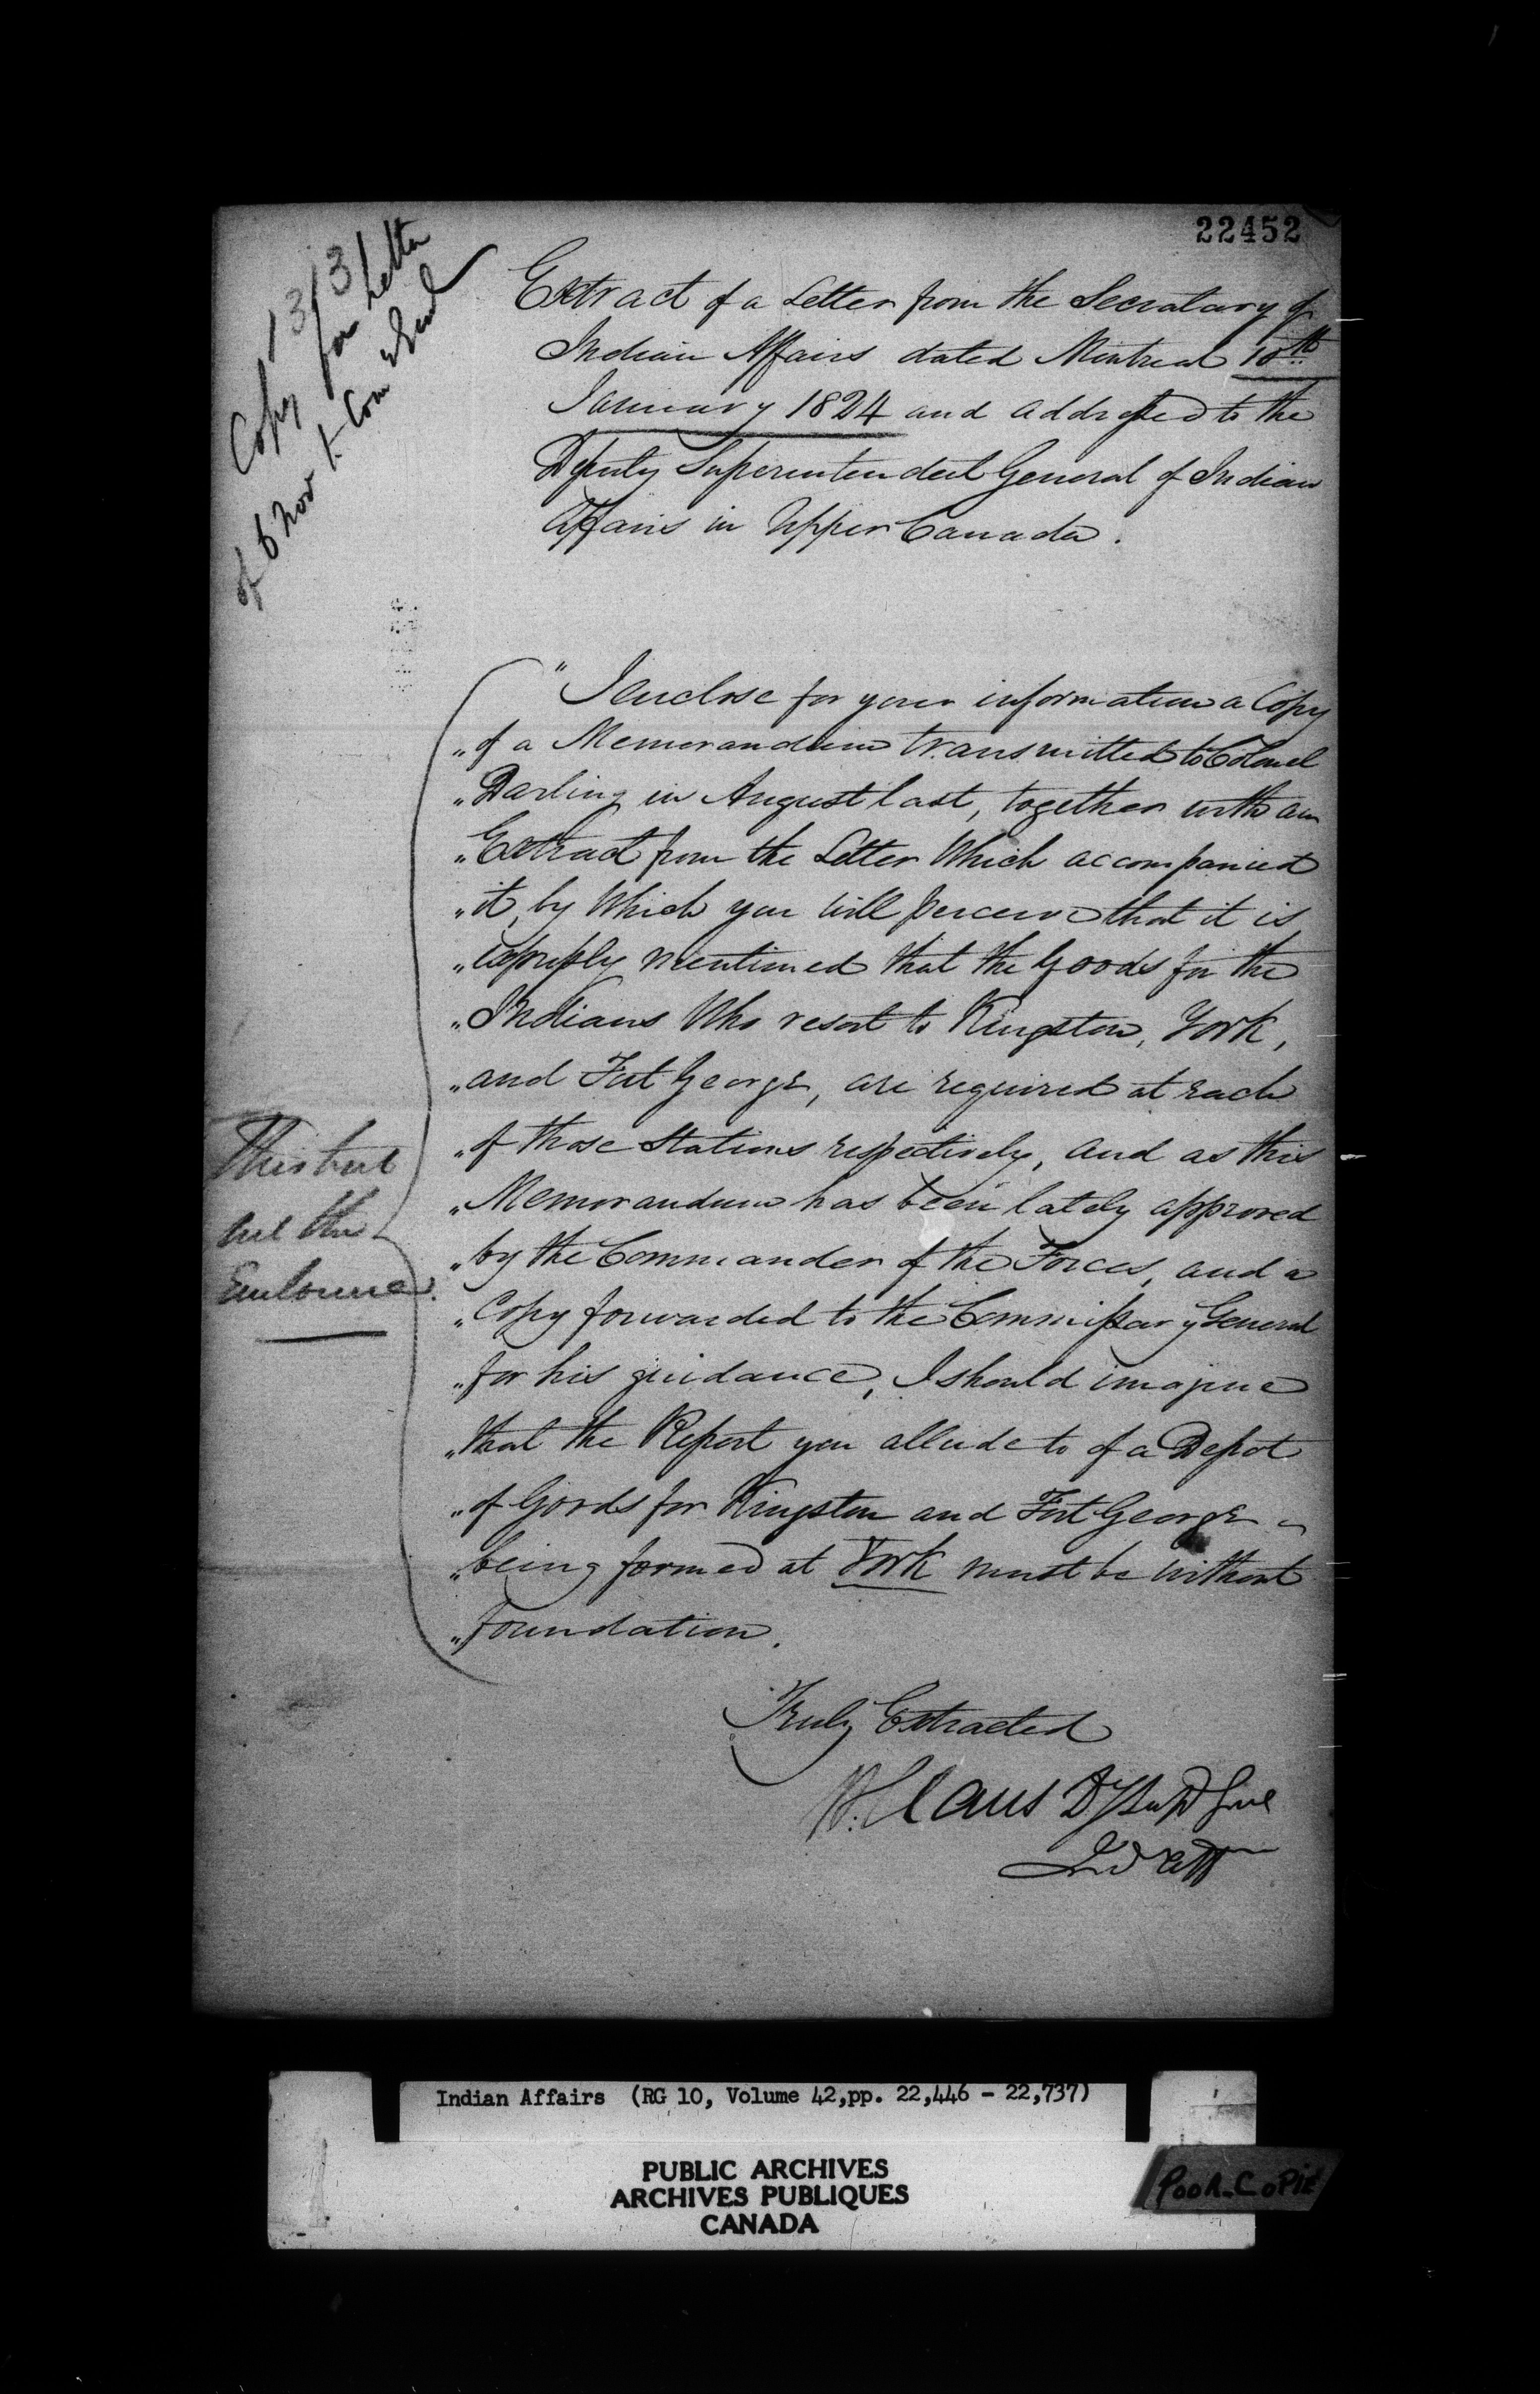 22452
13/31
Copy for Letter
of 6 Nov to Com Genl
Extract of a Letter from the Secretary of
Indian Affairs dated Montreal 10th
January 1824 and addressed to the
Deputy Superintendent General of Indian
Affairs in Upper Canada.
" I enclose for your information a Copy
" of a Memorandum transmitted to Colonel
" Darling in August last, together with an
" Extract from the Letter Which accompanied
" it, by Which you will perceive that it is
" expressly mentioned that the Goods for the
" Indians Who resort to Kingston, York,
" and Fort George, are required at each
" of those Stations respectively, and as this
" Memorandum has been lately approved
" by the Commander of the Forces, and a
" Copy forwarded to the Commissary General
" for his guidance, I should imagine
" that the Report you allude to of a Depot
" of Goods for Kingston and Fort George
" being formed at York must be without
" foundation.
This but
not the
Enclosure.
Truly Extracted
W. Claus Dy Supt Genl
Ind Aff
Indian Affairs (RG 10, Volume 42,pp. 22,446 - 22,737)
PUBLIC ARCHIVES
ARCHIVES PUBLIQUES
CANADA
POOR COPIE